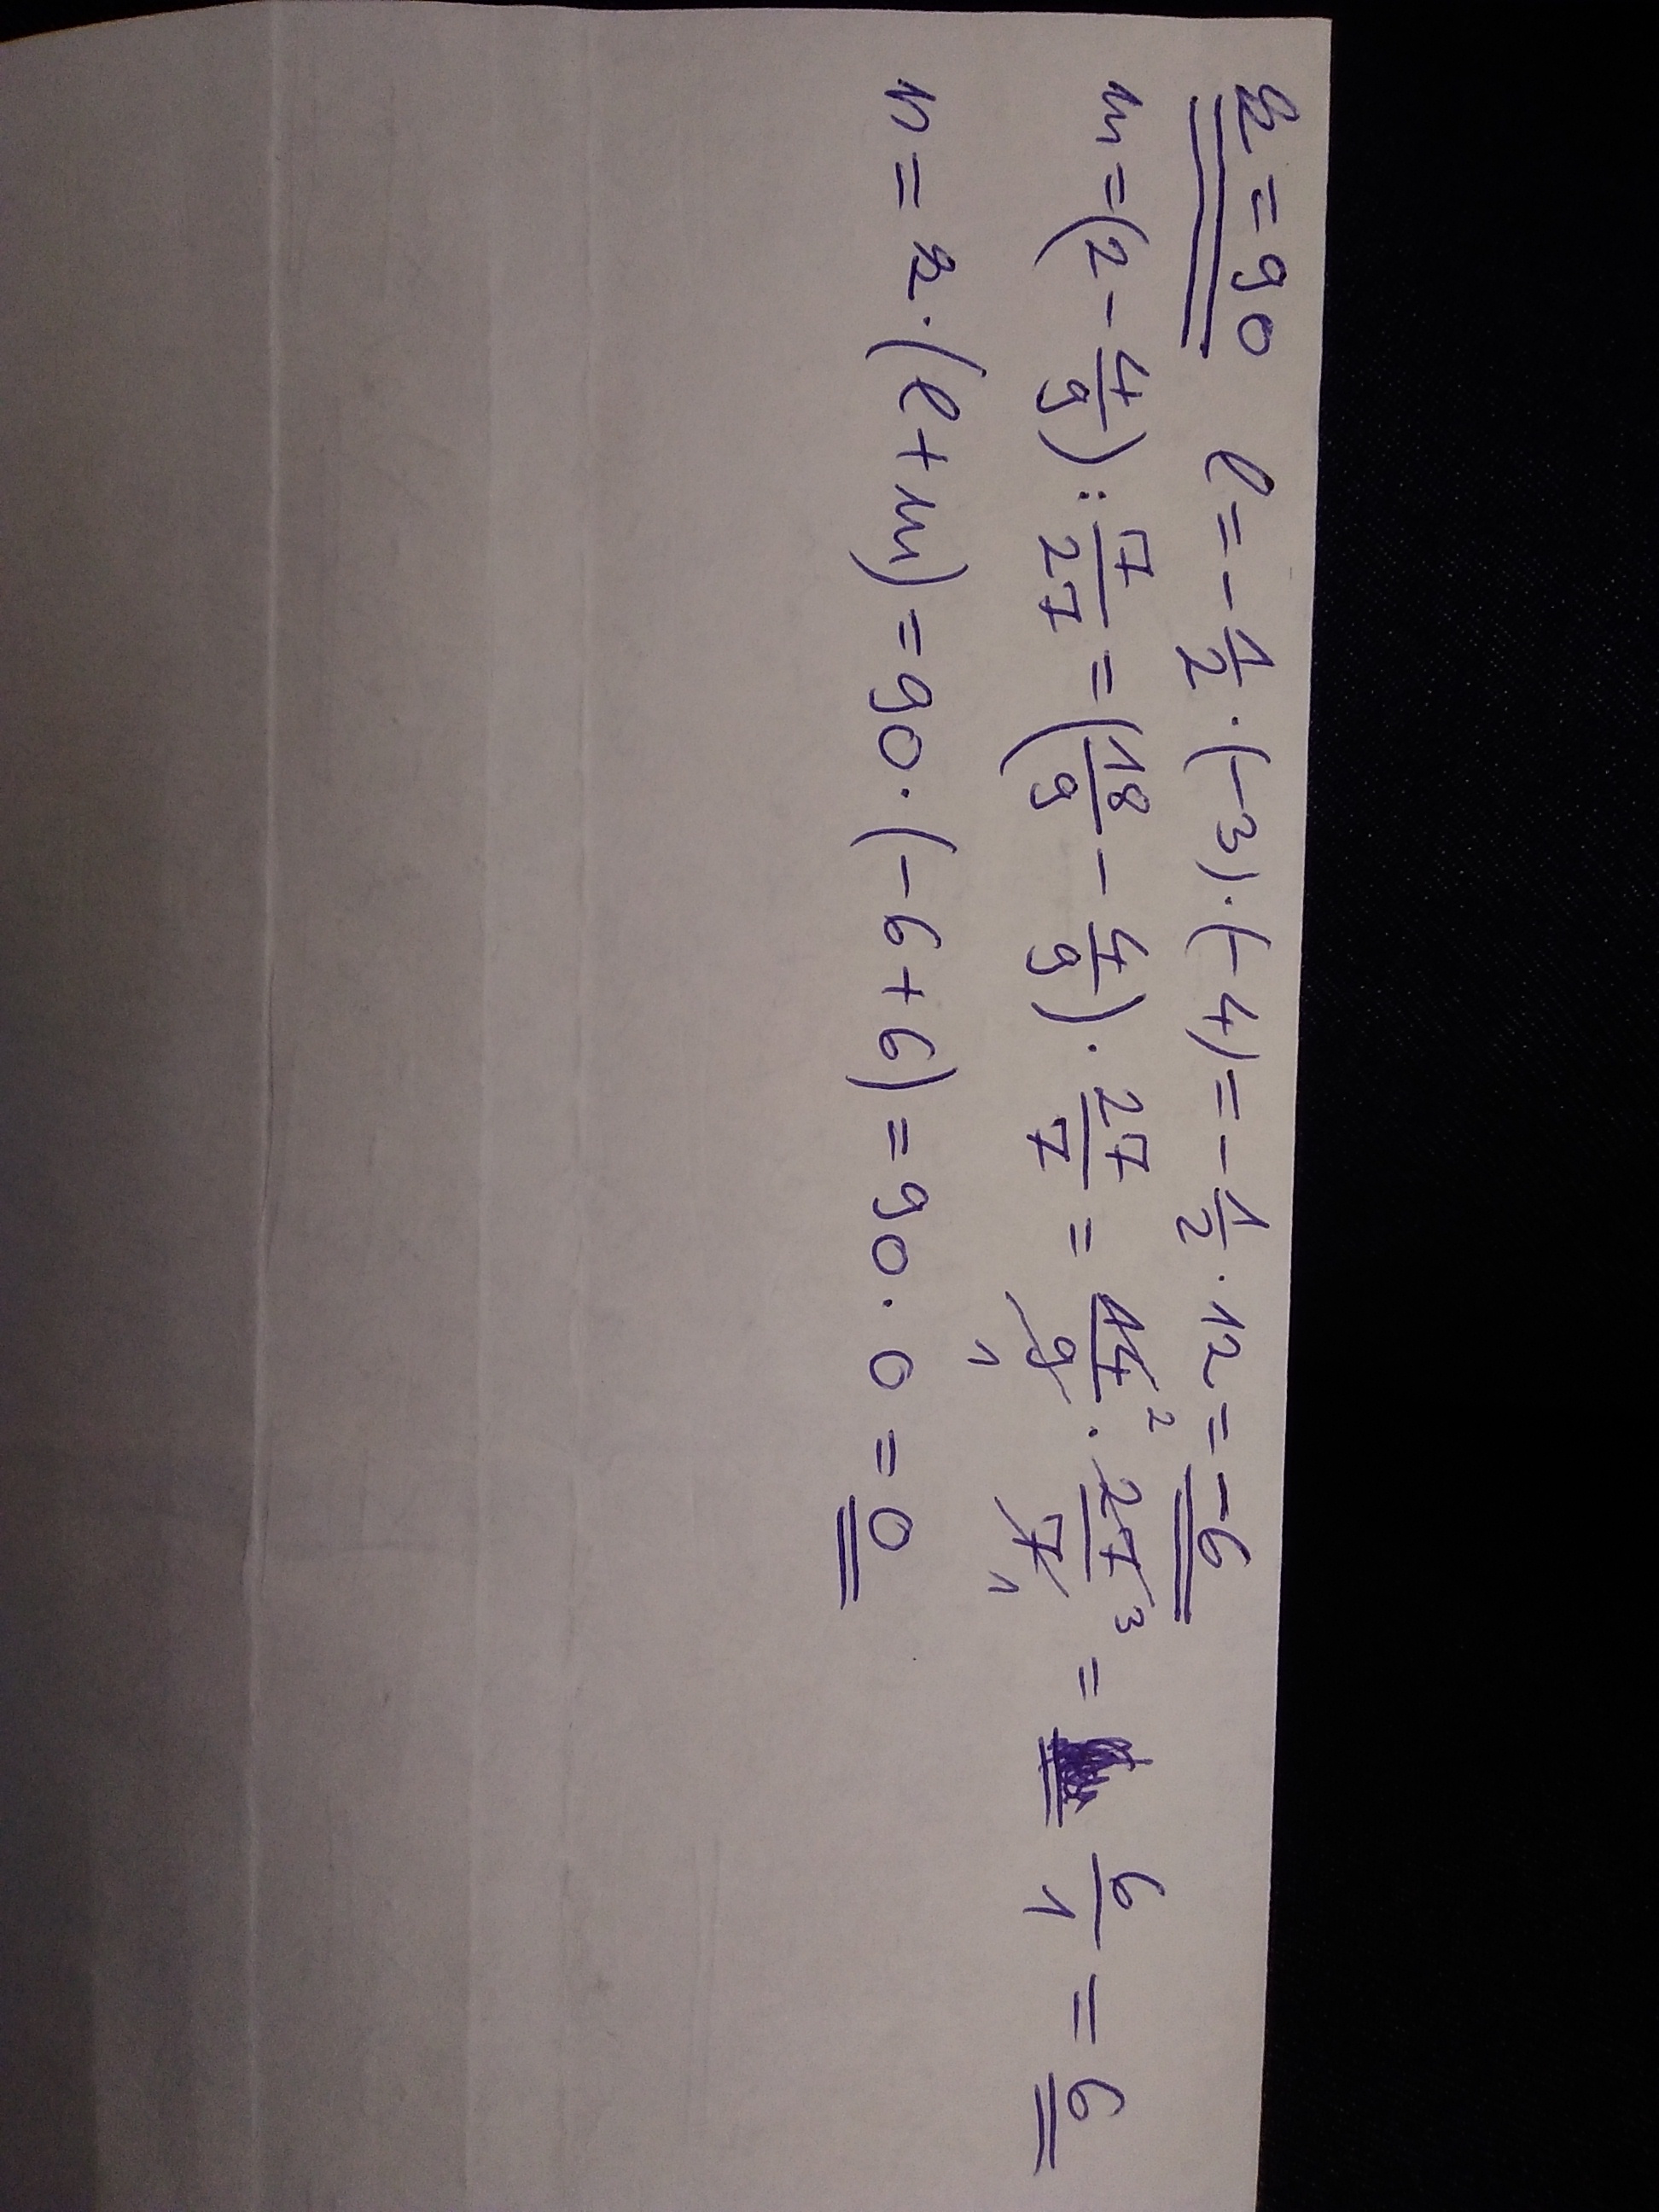 k = 90   l = -1/2 · (-3) · (-4) = -1/2 · 12 = -6
m = (2 - 4/9) : 7/27 = (18/9 - 4/9) · 27/7 = 14/9 · 27/7 = 6/1 = 6
n = k · (l + m) = 90 · (-6 + 6) = 90 · 0 = 0